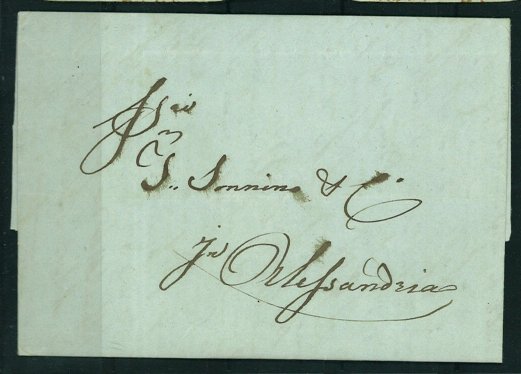 S. Sonnino & C.
in Alessandria